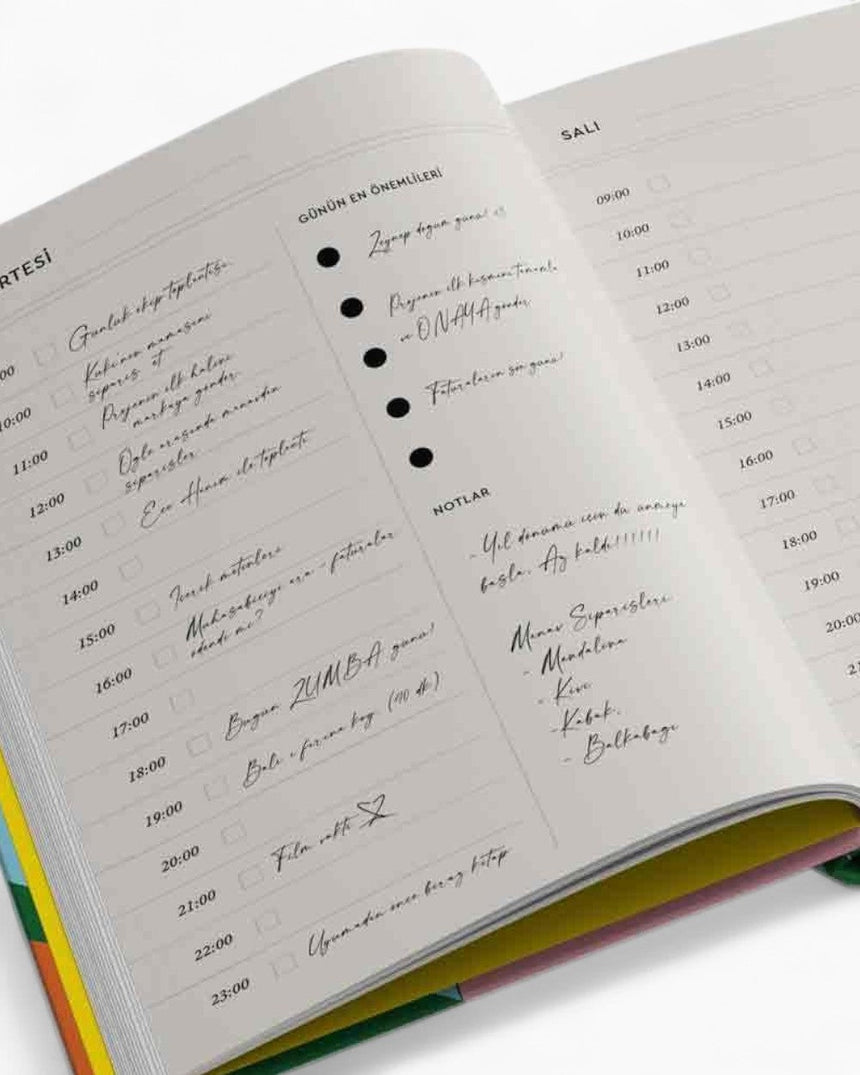 RTESİ
00 Günlük ekip toplantısı
10:00 Kuki'nin mamasını
sipariş et
11:00 Projenin ilk halini
markaya gönder.
12:00 Öğle arasında manavdan
siparişler
13:00 Ece Hanım ile toplantı
14:00
15:00 İçerik metinleri
16:00 Muhasebeciyi ara - faturalar
ödendi mi?
17:00
18:00 Bugün ZUMBA günü!
19:00 Balı ı fırına koy. (40 dk)
20:00
21:00 Film vakti
22:00
23:00 Uyumadan önce biraz kitap
GÜNÜN EN ÖNEMLİLERİ
Zeynep doğum günü!
Projenin ilk kısmını tamamla
ve ONAYA gönder.
Faturaların son günü!
NOTLAR
- Yıl dönümü için düşünmeye
başla. Az kaldı!!!!!!!
Manav Siparişleri
- Mandalina
- Kivi
- Kabak.
- Balkabağı
SALI
09:00
10:00
11:00
12:00
13:00
14:00
15:00
16:00
17:00
18:00
19:00
20:00
21